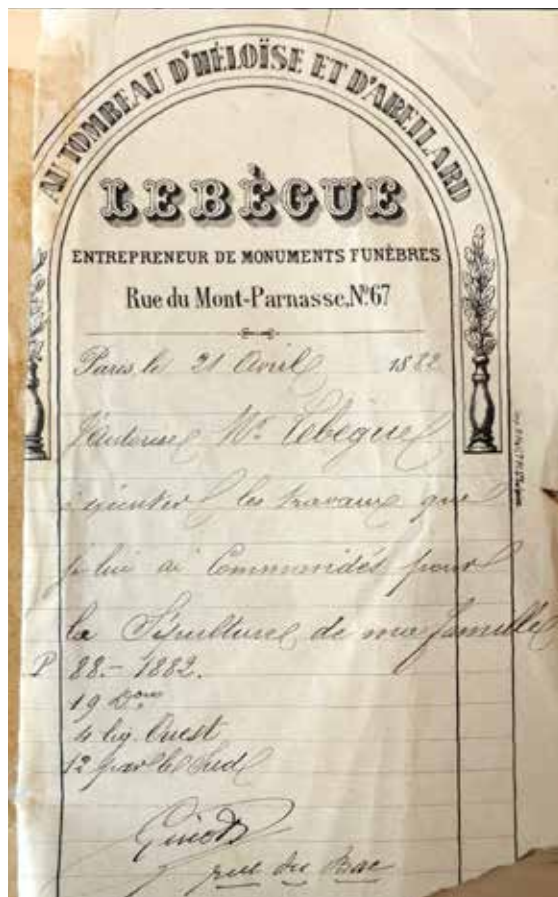 AU TOMBEAU D'HÉLOÏSE ET D'ABEILARD
LEBÈGUE
ENTREPRENEUR DE MONUMENTS FUNÈBRES
Rue du Mont-Parnasse, Nº 67
Paris, le 21 Avril 1882
J'autorise Mr Lebègue
à exécuter les travaux que
je lui ai Commandés pour
la Sépulture de ma famille
P 88.- 1882.
19 Don
4 lig. Ouest
12 par le Sud
rue du Bac